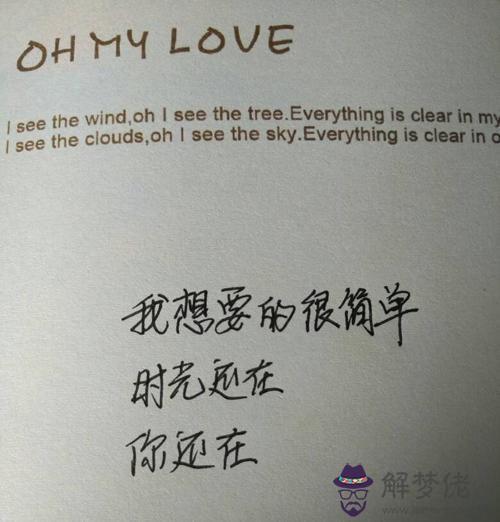 OH MY LOVE
I see the wind,oh I see the tree.Everything is clear in my
I see the clouds,oh I see the sky.Everything is clear in
我想要的很简单
时光还在
你还在
解梦佬